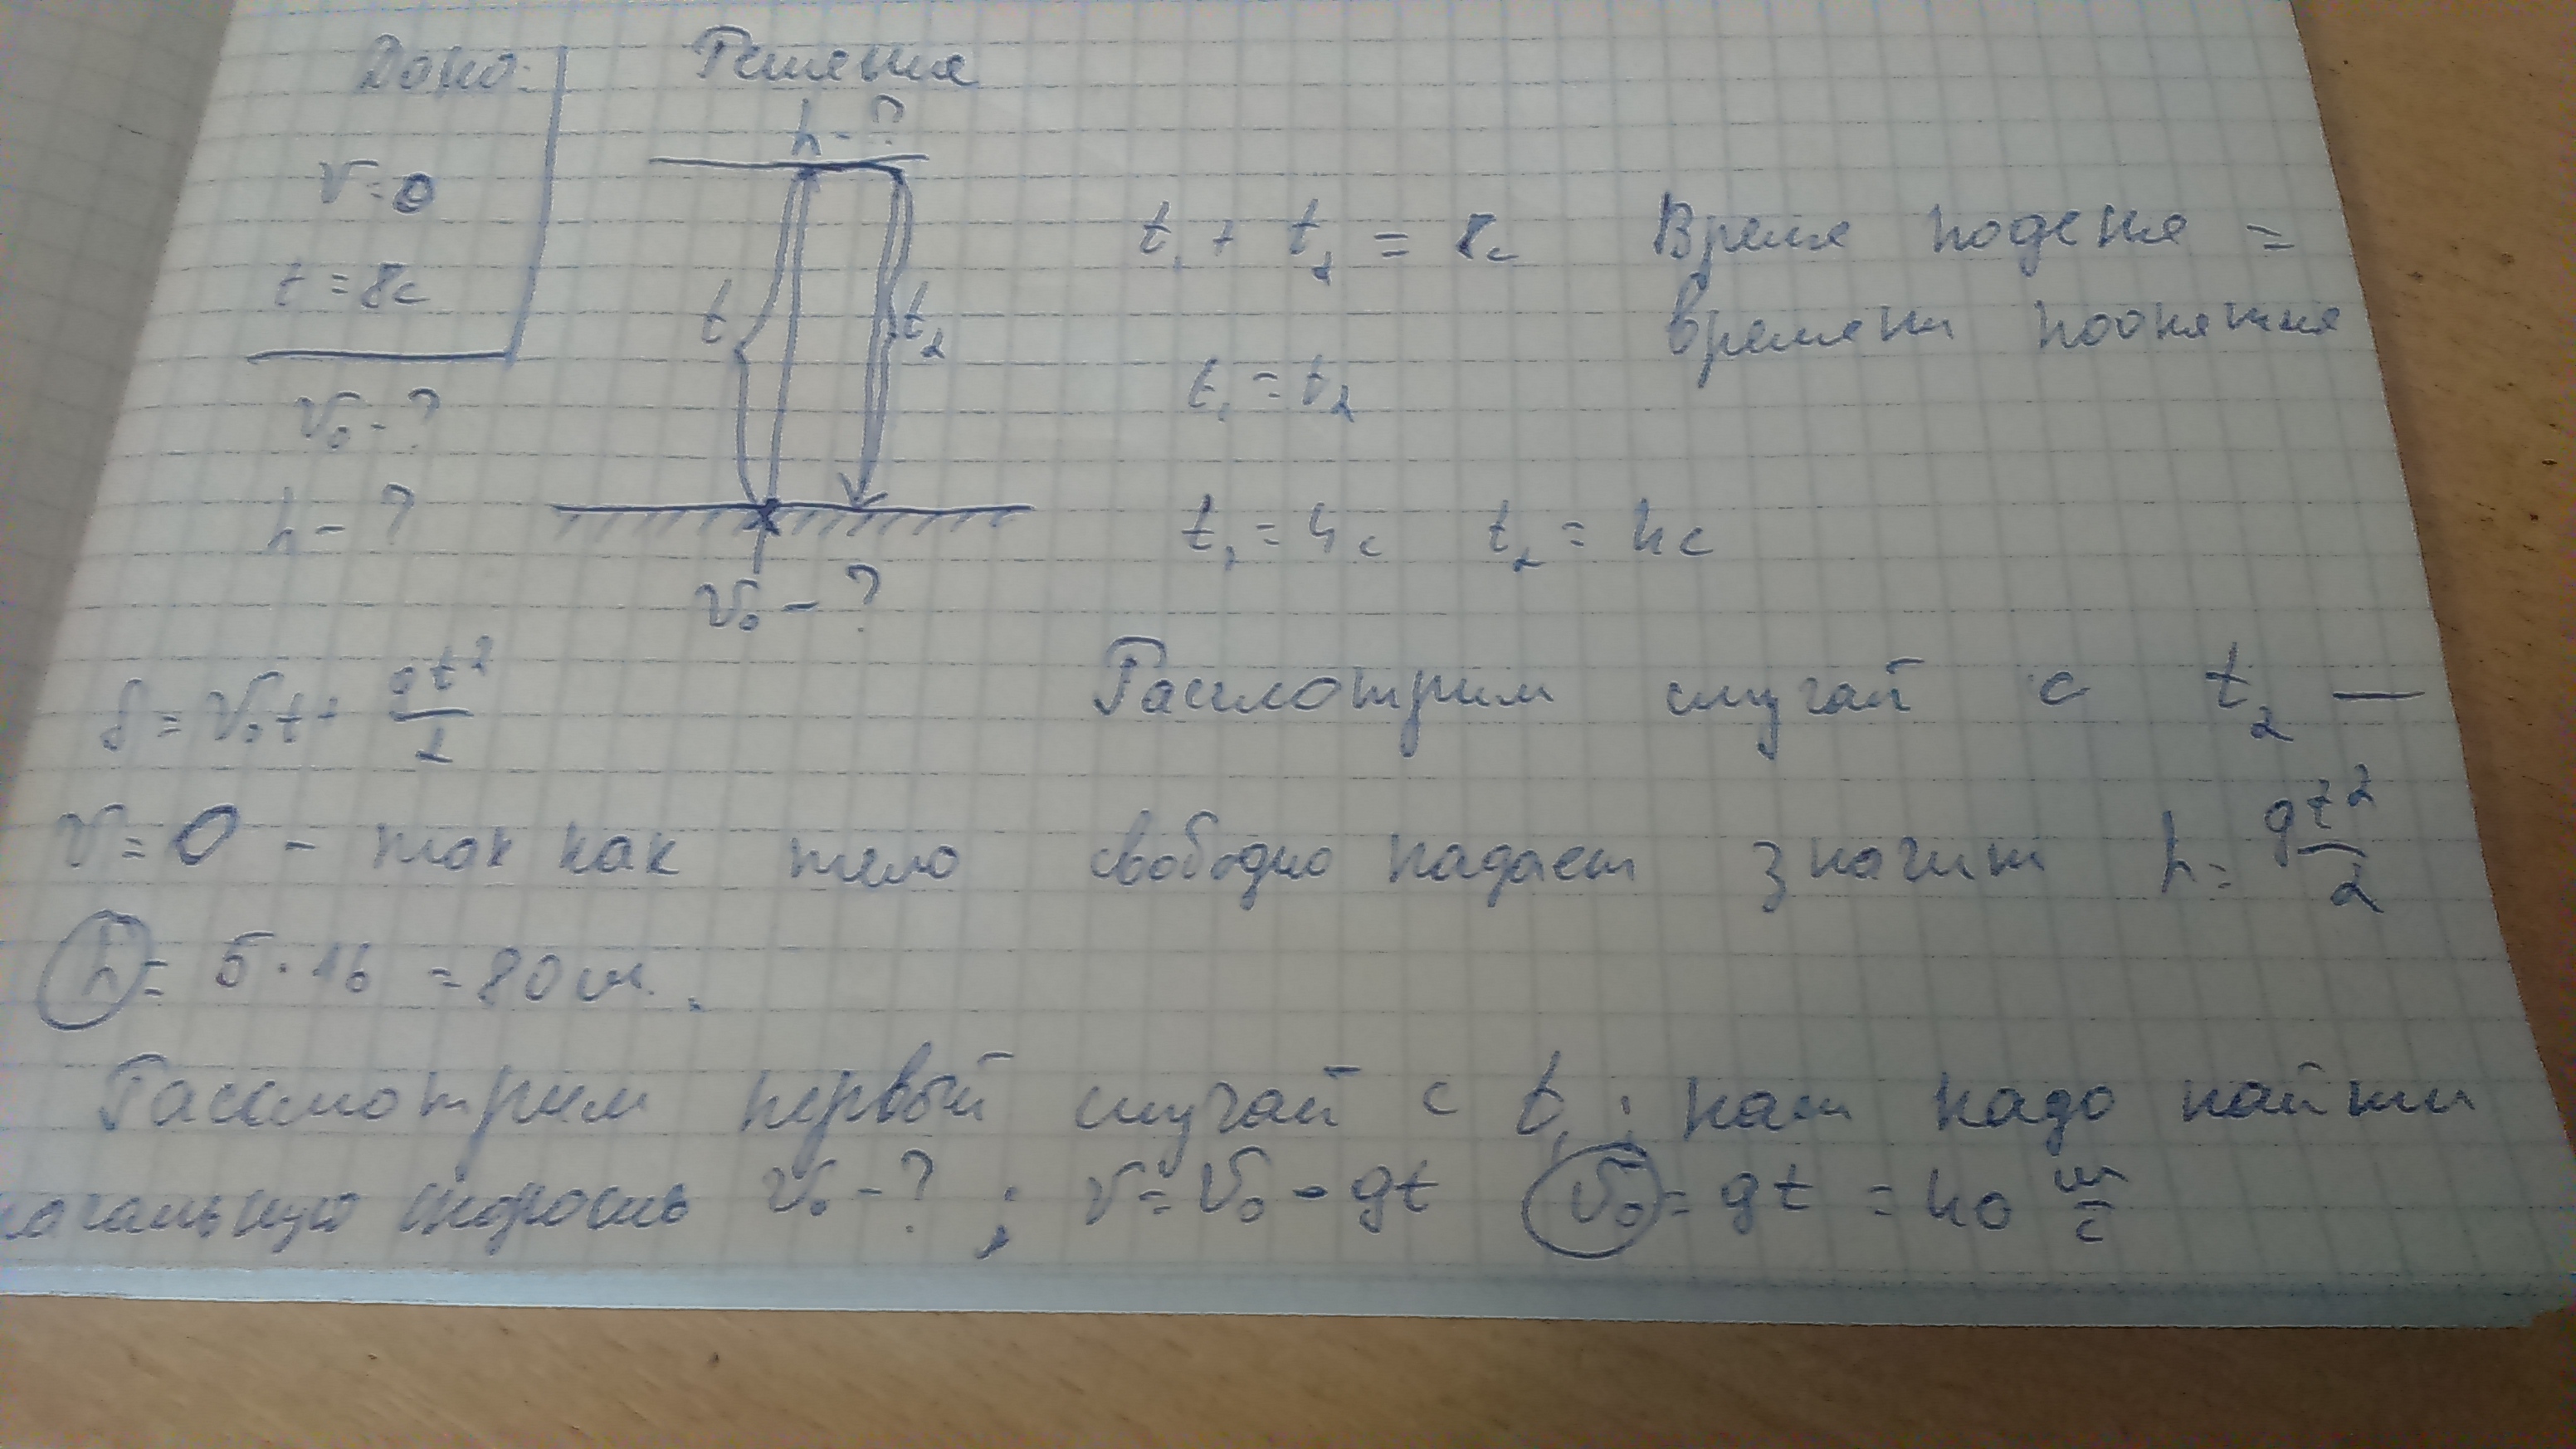 Дано: Решение
h - ?
v = 0
t₁ + t₂ = 8с Время подения =
t = 8с
времени поднятия
t t₂
t₁ = t₂
v₀ - ?
h - ?
t₁ = 4с t₂ = 4с
v₀ - ?
S = v₀t + gt²/2 Рассмотрим случай с t₂ —
v = 0 - так как тело свободно падает значит h = gt²/2
h = 5 · 16 = 80 м.
Рассмотрим первый случай с t₁ ; нам надо найти
начальную скорость v₀ - ? ; v = v₀ - gt v₀ = gt = 40 м/с